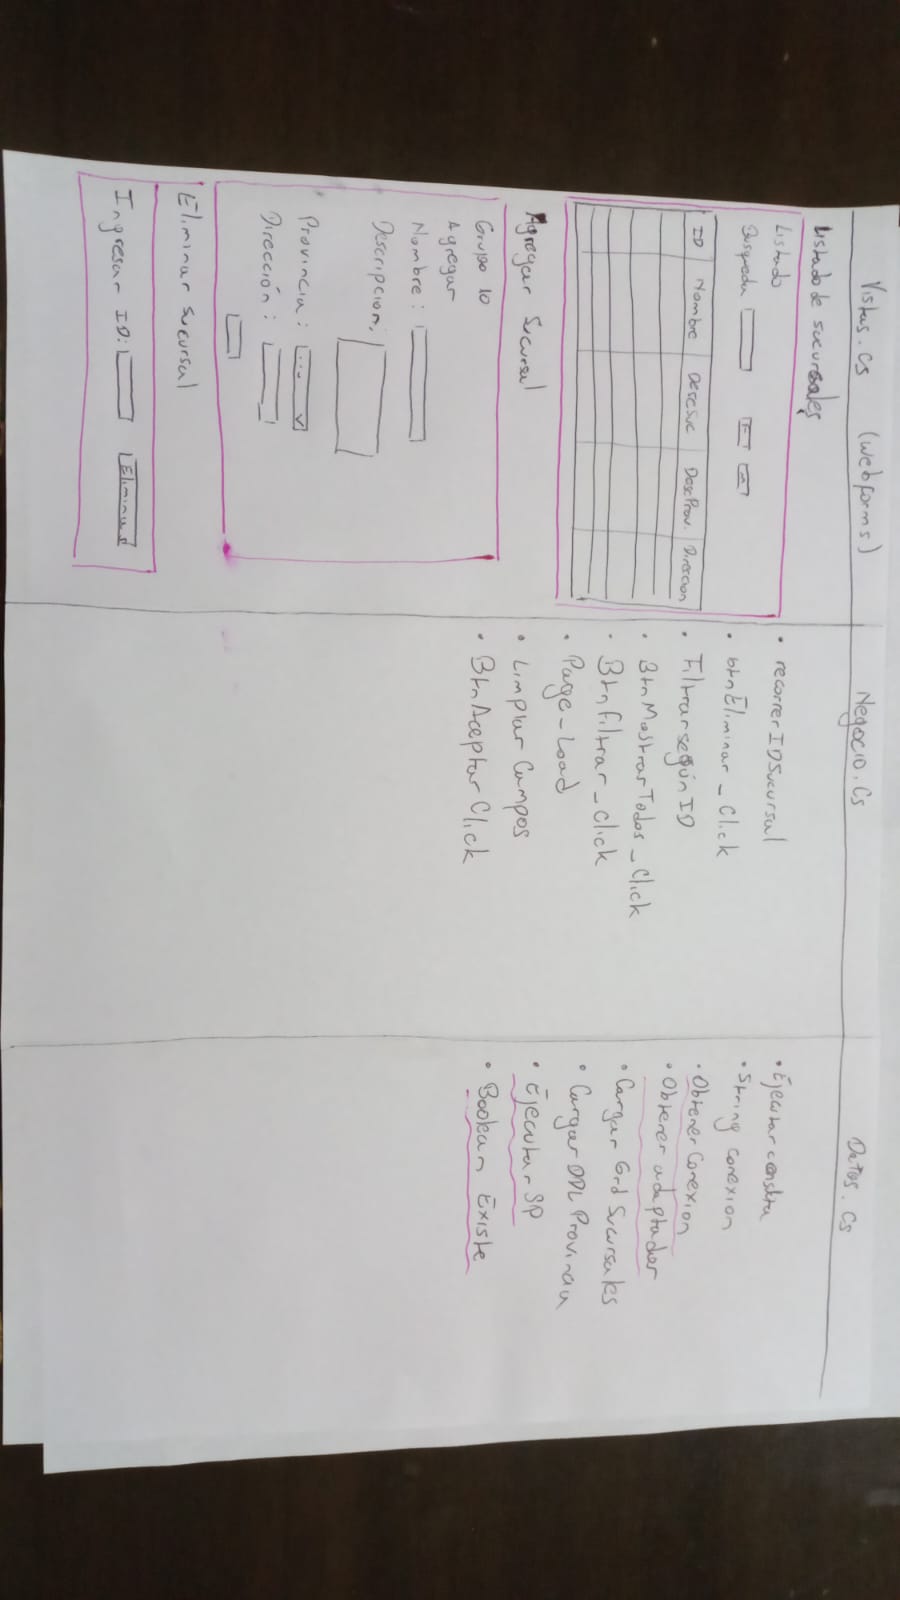 Vistas.Cs (webforms)
Listado de sucursales
Listado
Busqueda F M
ID Nombre DescSuc DescProv. Direccion
Agregar Sucursal
Grupo 10
Agregar
Nombre:
Descripcion:
Provincia: ...
Dirección:
Eliminar Sucursal
Ingresar ID: Eliminar
Negocio.Cs
• recorrerIDSucursal
• btnEliminar_Click
• Filtrar según ID
• BtnMostrarTodos_Click
• Btnfiltrar_Click
• Page_Load
• Limpiar Campos
• BtnAceptar Click
Datos.Cs
• Ejecutar consulta
• String conexion
• Obtener Conexion
• Obtener adaptador
• Cargar Grd Sucursales
• Cargar DDL Provincia
• Ejecutar SP
• Boolean Existe